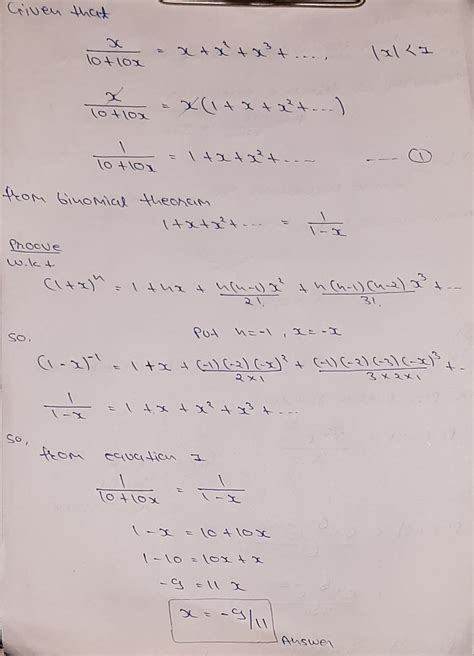 Given that
x/(10+10x) = x + x² + x³ + ...., |x| < 1
x/(10+10x) = x(1 + x + x² + ...)
1/(10+10x) = 1 + x + x² + .... ---- ①
from binomial theorem
1 + x + x² + ... = 1/(1-x)
Proove
w.k.t
(1+x)ⁿ = 1 + nx + n(n-1)x²/2! + n(n-1)(n-2)x³/3! + ...
so, Put n=-1, x=-x
(1-x)⁻¹ = 1 + x + (-1)(-2)(-x)²/2×1 + (-1)(-2)(-3)(-x)³/3×2×1 + ..
1/(1-x) = 1 + x + x² + x³ + ...
so,
from equation 1
1/(10+10x) = 1/(1-x)
1-x = 10+10x
1-10 = 10x+x
-9 = 11 x
x = -9/11
Answer